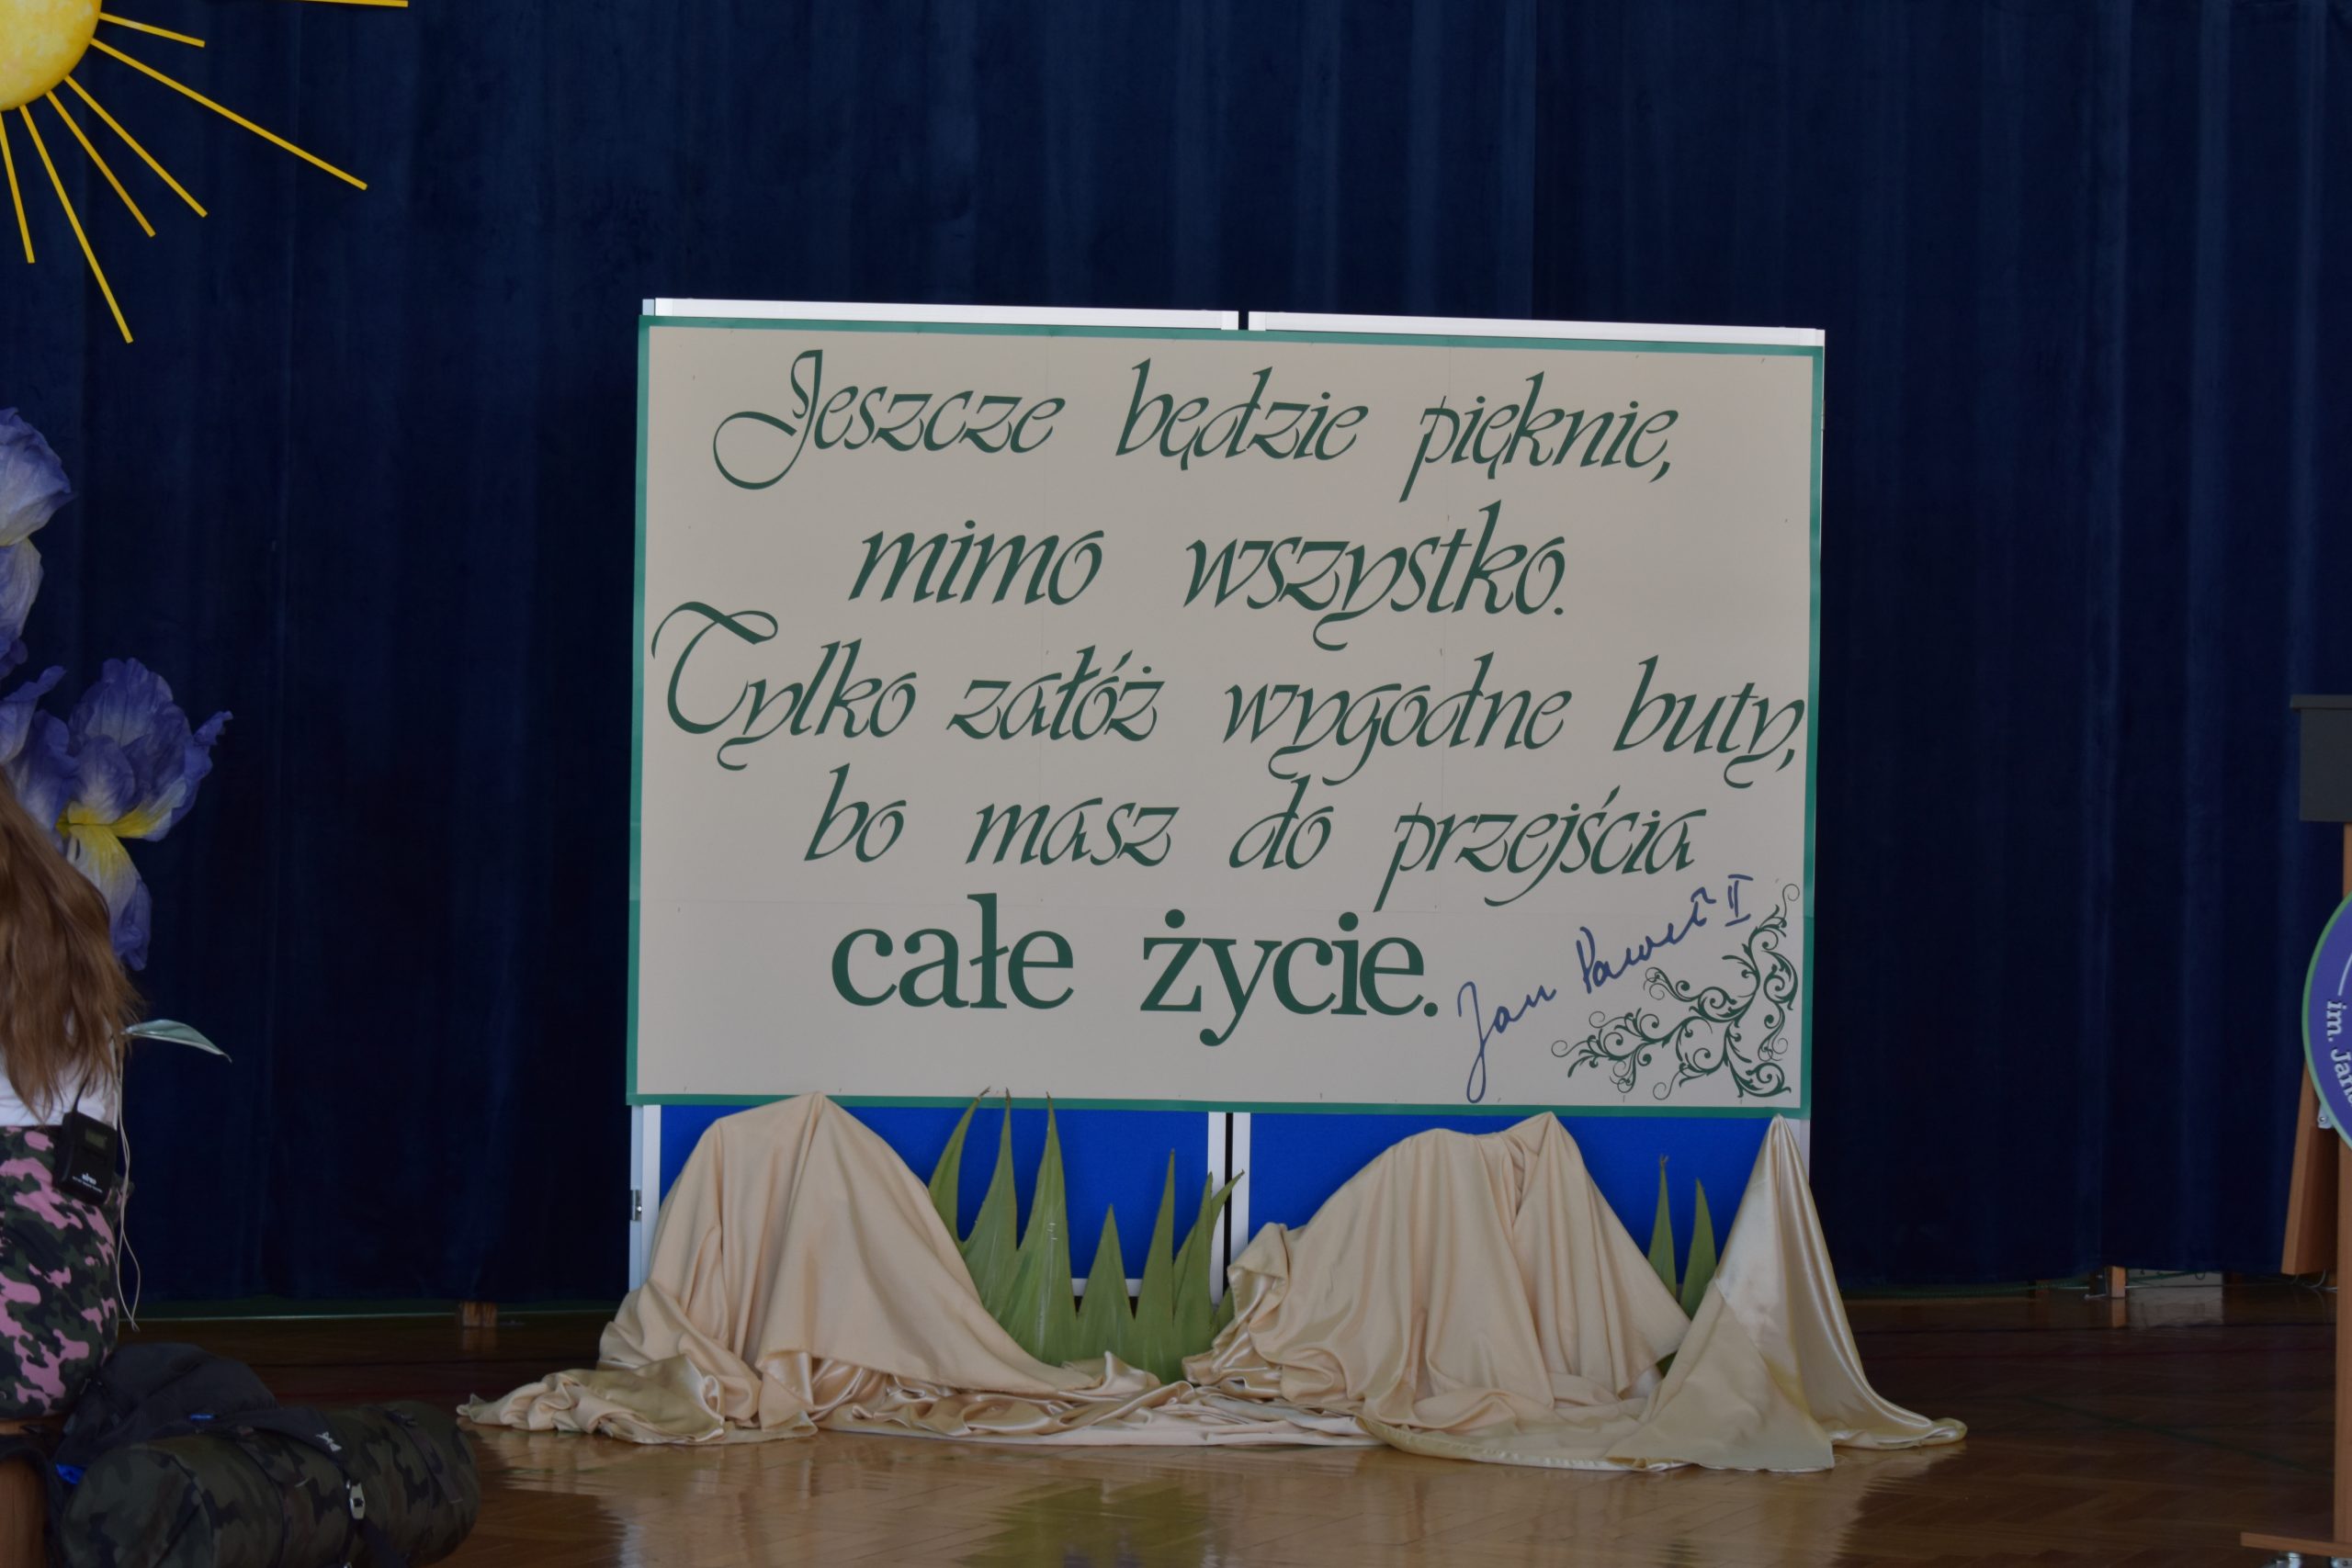 Jeszcze będzie pięknie,
mimo wszystko.
Tylko załóż wygodne buty,
bo masz do przejścia
całe życie.
Jan Paweł II
im. Jana